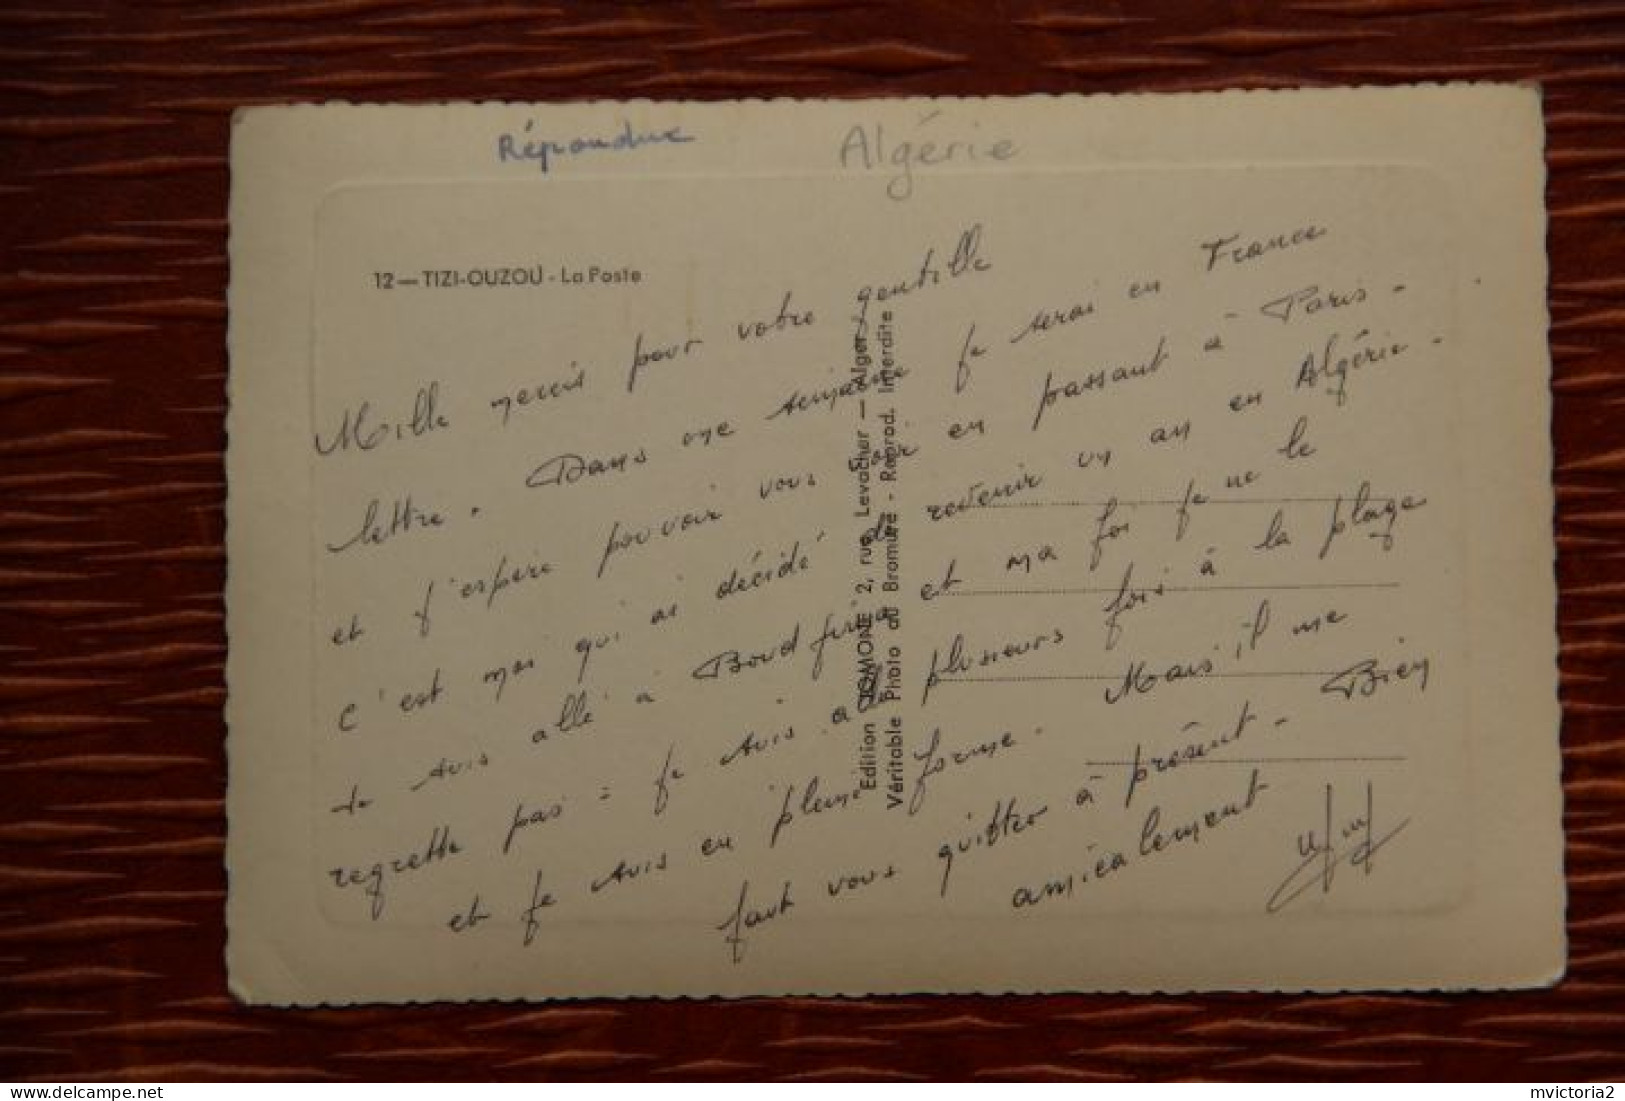 Répondue
Algérie
12 — TIZI-OUZOU - La Poste
Mille mercis pour votre gentille
lettre. Dans une semaine je serai en France
et j'espère pouvoir vous voir en passant à Paris.
c'est moi qui ai décidé de revenir un an en Algérie.
Je suis allé à et ma foi je ne le
regrette pas = je suis allé plusieurs fois à la plage
et je suis en pleine forme. Mais il me
faut vous quitter à présent. Bien
amicalement
Edition JOMONE 2, rue Levacher — Alger
Véritable Photo au Bromure - Reprod. Interdite
mvictoria2